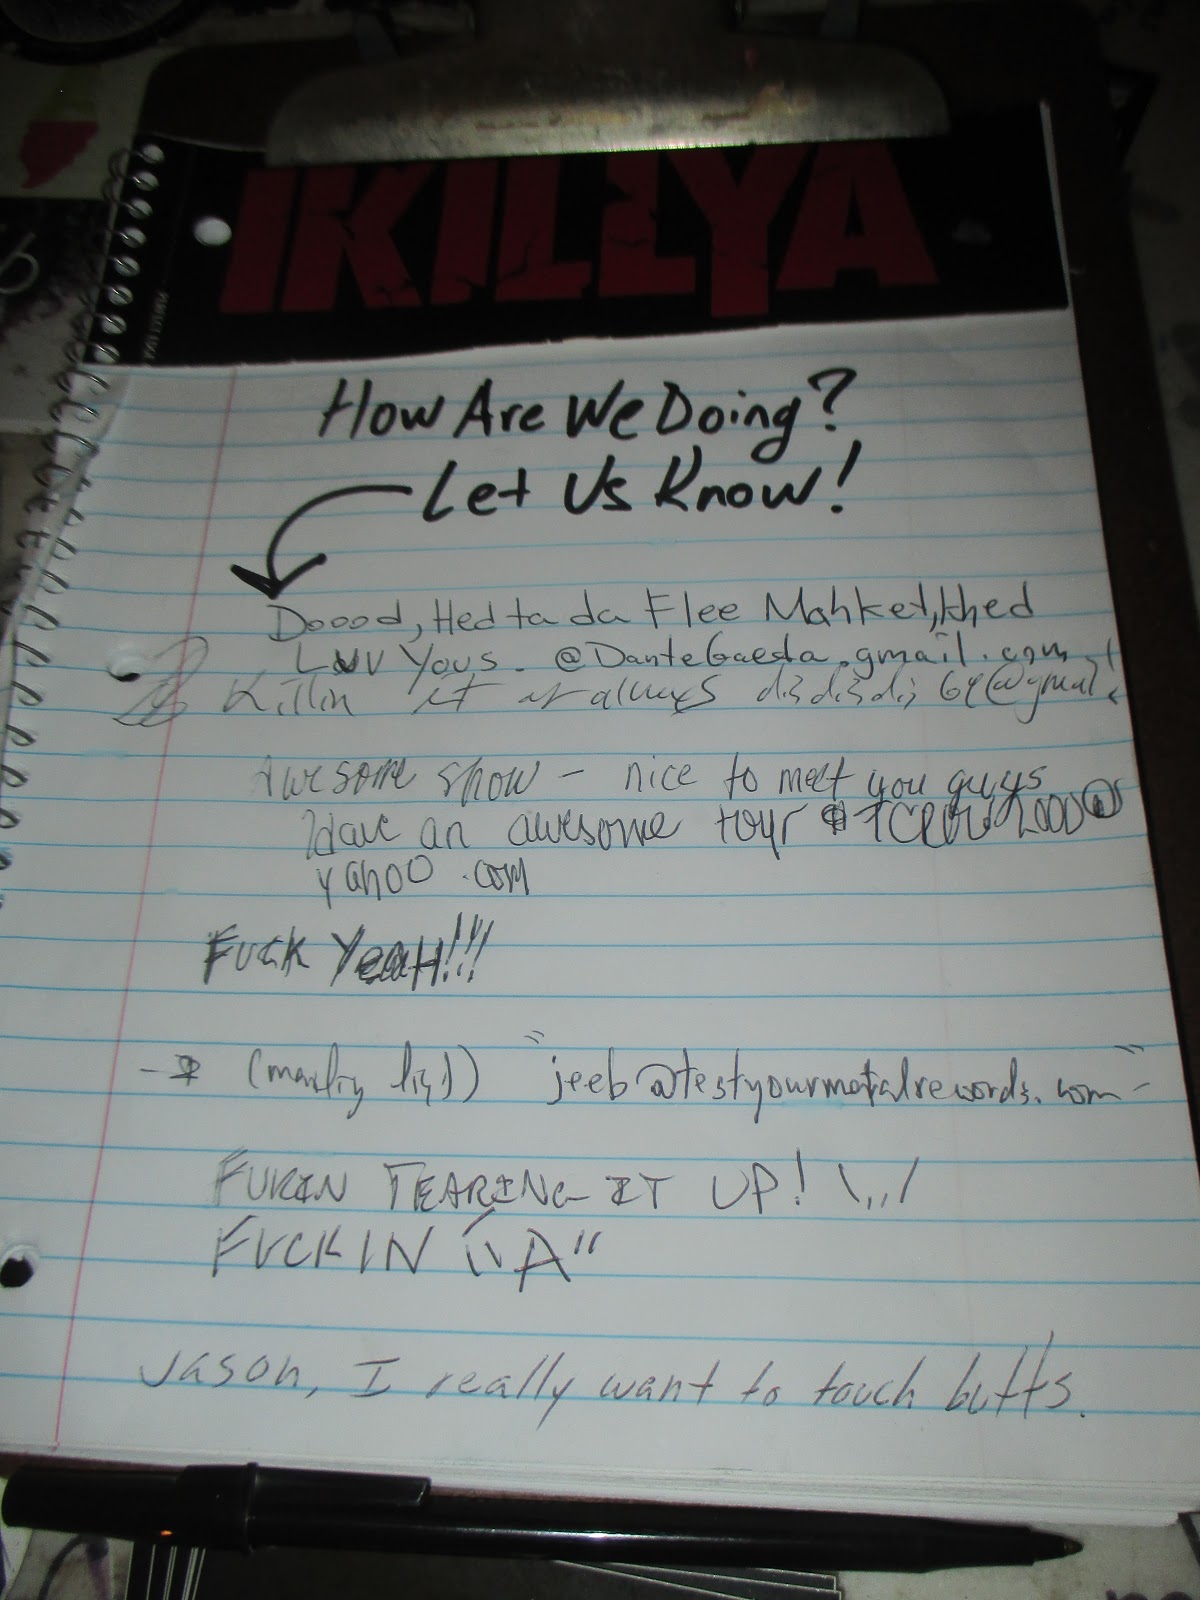 IKILLYA
How Are We Doing?
Let Us Know!
Doood, Hed ta da Flee Mahket, khed
Luv Yous. @DanteGaeda.gmail.com
Killin it as always
Awesome show - nice to meet you guys
Have an awesome tour
yahoo.com
FUCK YEAH!!!
(mailing list) "jeeb@testyourmetalrewords.com"
FUKIN TEARING IT UP! \,,/
FUCKIN "A"
Jason, I really want to touch butts.